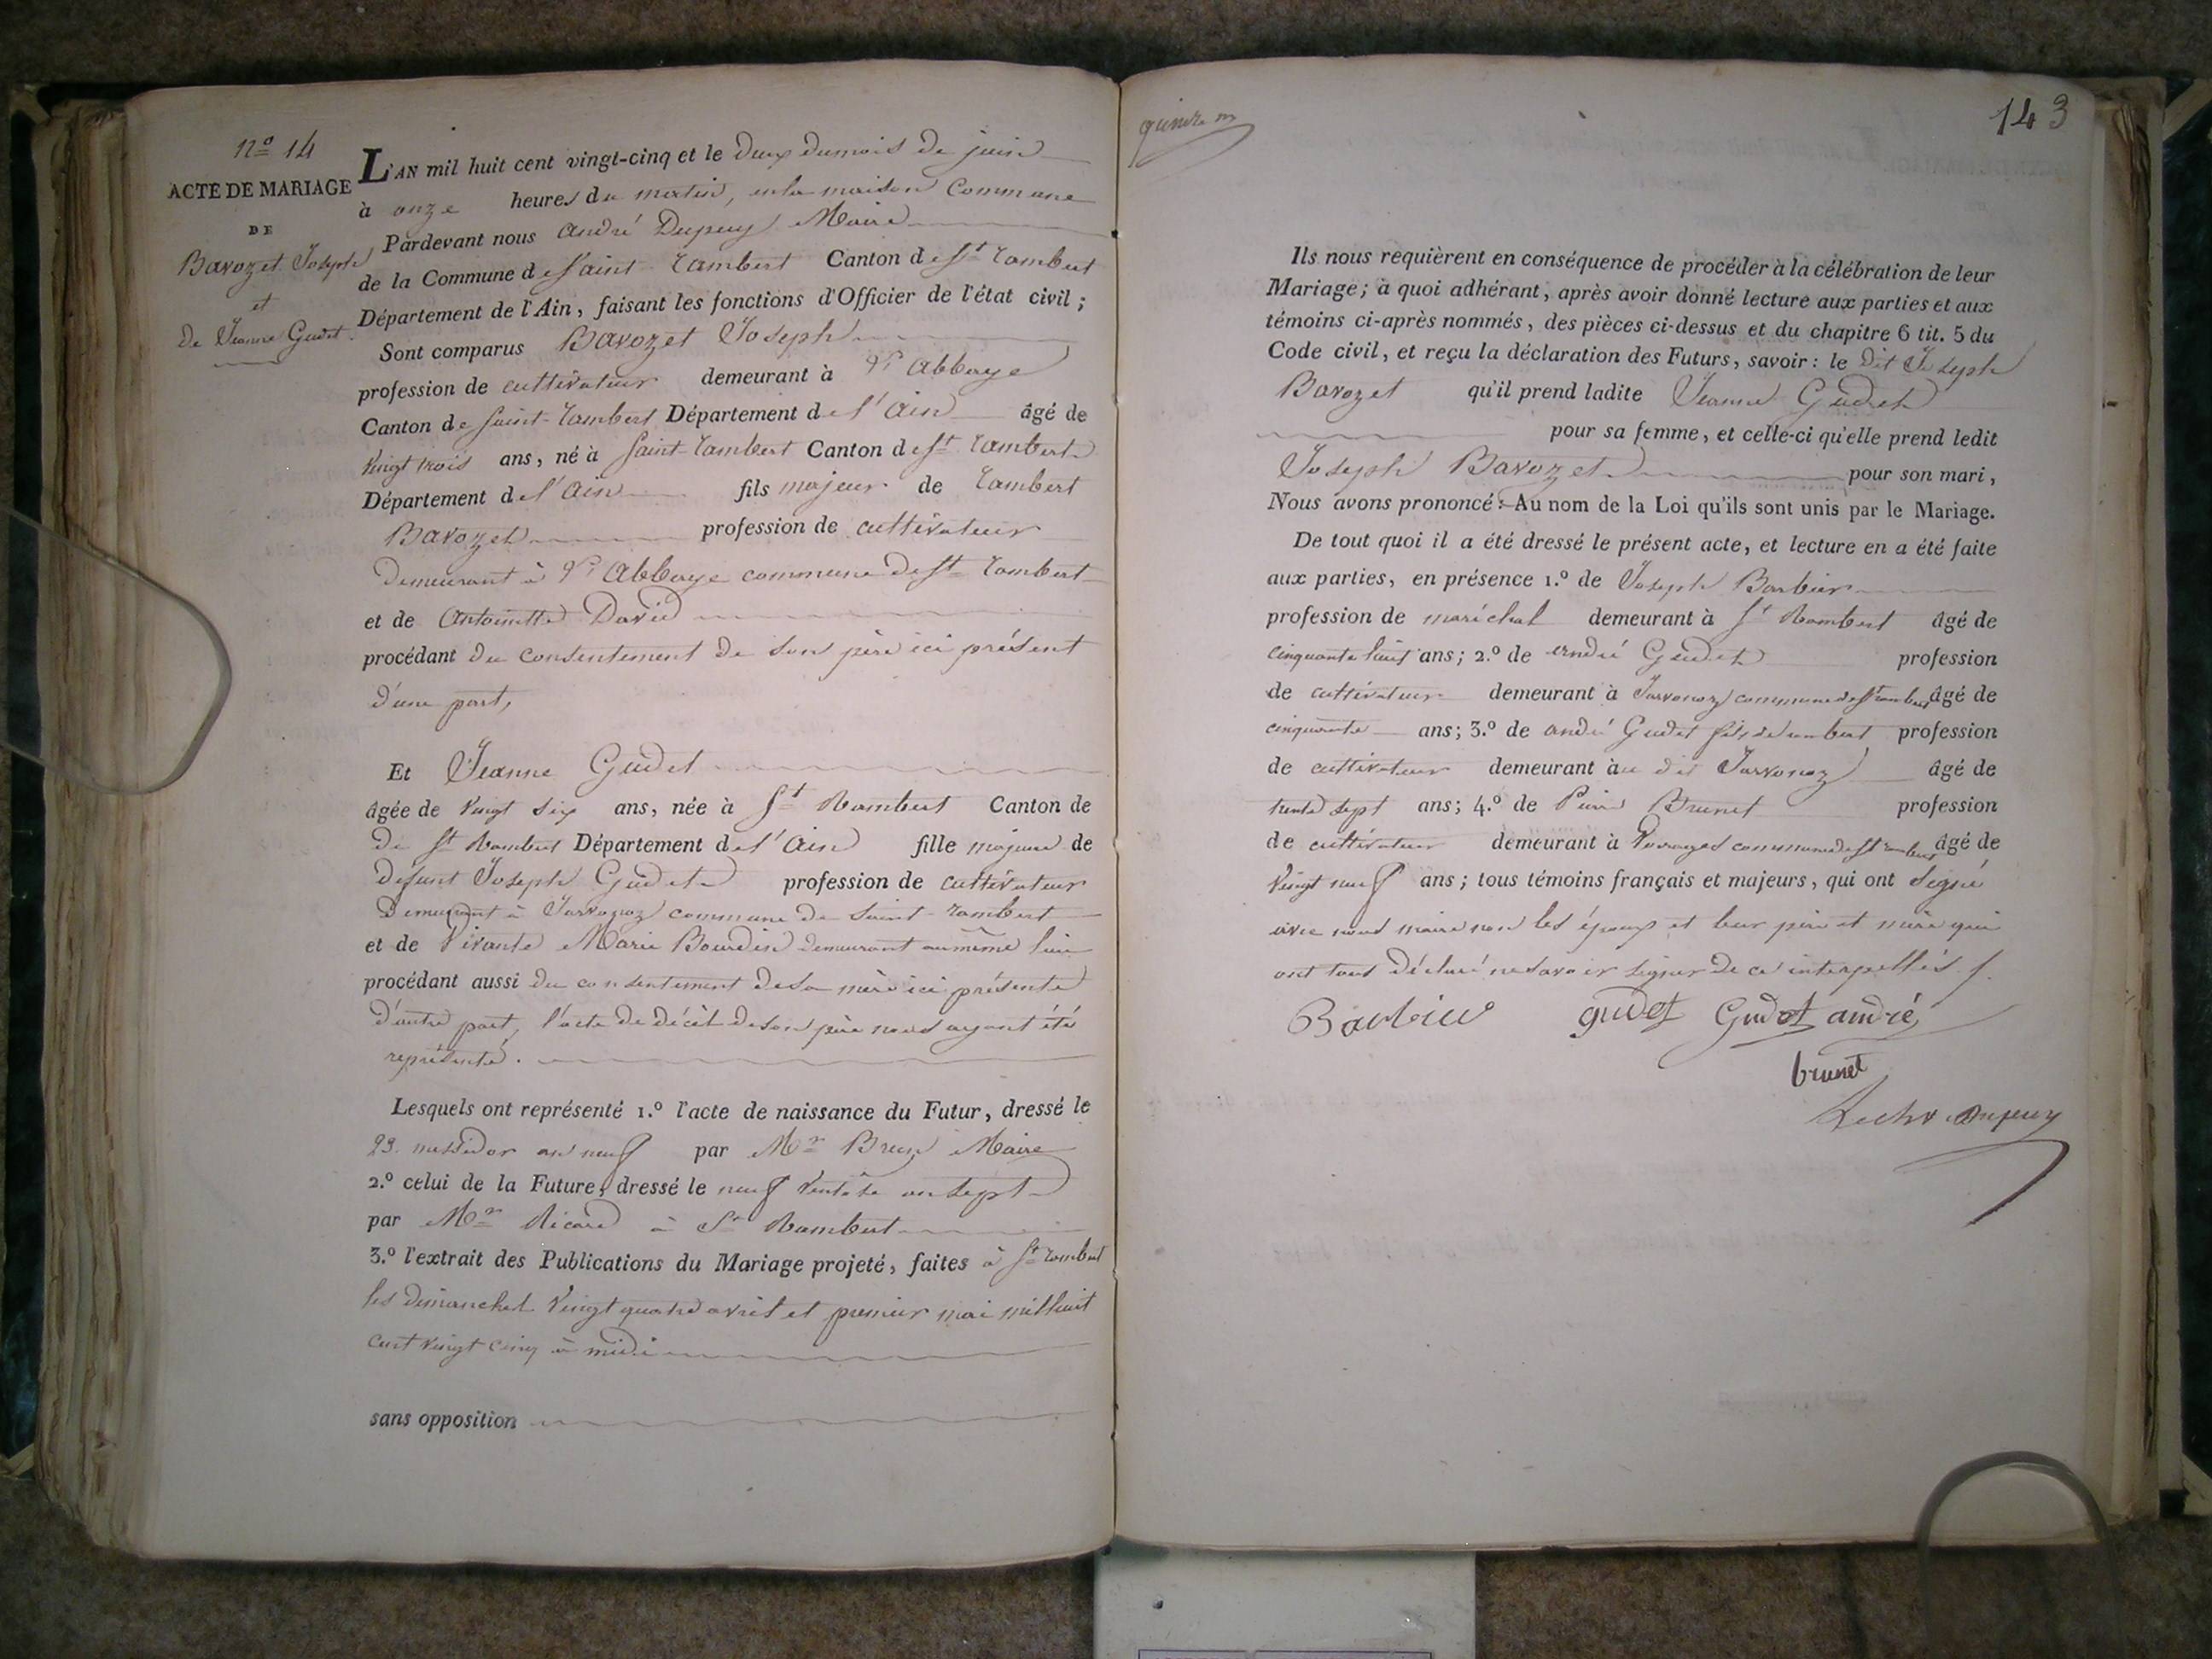 N.º 14
ACTE DE MARIAGE
DE
Bavozet Joseph
et
de Jeanne Gudet.
L'AN mil huit cent vingt-cinq et le deux du mois de juin
à onze heures du matin, en la maison Commune
Pardevant nous André Dupuy Maire
de la Commune de Saint-Rambert Canton de St Rambert
Département de l'Ain, faisant les fonctions d'Officier de l'état civil ;
Sont comparus Bavozet Joseph
profession de cultivateur demeurant à Abbaye
Canton de Saint-Rambert Département de l'Ain âgé de
vingt trois ans, né à Saint-Rambert Canton de St Rambert
Département de l'Ain fils majeur de Rambert
Bavozet profession de cultivateur
demeurant à Abbaye commune de St Rambert
et de Antoinette David
procédant du consentement de son père ici présent
d'une part,
Et Jeanne Gudet
âgée de vingt six ans, née à St Rambert Canton de
de St Rambert Département de l'Ain fille majeure de
defunt Joseph Gudet profession de cultivateur
demeurant à Javornoz commune de Saint-Rambert
et de vivante Marie Bourdin demeurant au même lieu
procédant aussi du consentement de sa mère ici présente
d'autre part, l'acte de décès de son père nous ayant été
représenté.
Lesquels ont représenté 1.º l'acte de naissance du Futur, dressé le
23 messidor an neuf par Mr Brun Maire
2.º celui de la Future, dressé le neuf ventôse an sept
par Mr Ricard à St Rambert
3.º l'extrait des Publications du Mariage projeté, faites à St Rambert
les dimanches vingt quatre avril et premier mai mil huit
cent vingt cinq à midi
sans opposition
143
Ils nous requièrent en conséquence de procéder à la célébration de leur
Mariage ; à quoi adhérant, après avoir donné lecture aux parties et aux
témoins ci-après nommés, des pièces ci-dessus et du chapitre 6 tit. 5 du
Code civil, et reçu la déclaration des Futurs, savoir : le dit Joseph
Bavozet qu'il prend ladite Jeanne Gudet
pour sa femme, et celle-ci qu'elle prend ledit
Joseph Bavozet pour son mari,
Nous avons prononcé : Au nom de la Loi qu'ils sont unis par le Mariage.
De tout quoi il a été dressé le présent acte, et lecture en a été faite
aux parties, en présence 1.º de Joseph Barbier
profession de maréchal demeurant à St Rambert âgé de
cinquante huit ans ; 2.º de André Gudet profession
de cultivateur demeurant à Javornoz commune de St Rambert âgé de
cinquante ans ; 3.º de André Gudet fils de Rambert profession
de cultivateur demeurant au dit Javornoz âgé de
trente sept ans ; 4.º de Pierre Brunet profession
de cultivateur demeurant à commune de St Rambert âgé de
vingt neuf ans ; tous témoins français et majeurs, qui ont signé
avec nous maire non les époux et leur père et mère qui
ont tous déclaré ne savoir signer de ce interpellés.
Barbier gudet Gudet andré
brunet
Dupuy